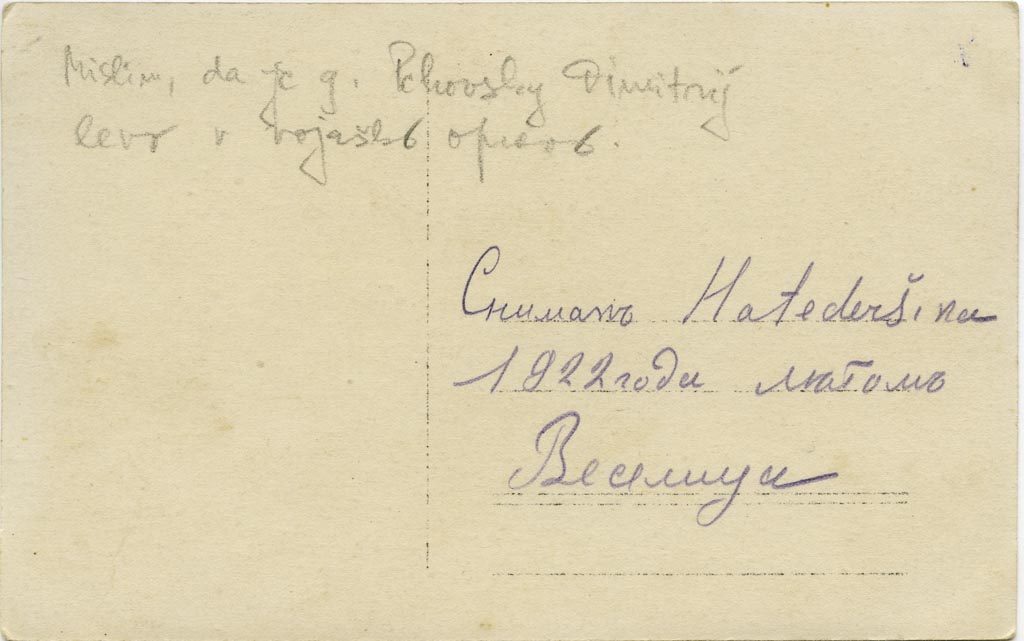 Mislim, da je g. Pehovsky Dimitrij
levo v vojaški opravi.
Сниманъ Hatederšina
1922 года лютомъ
Веселица